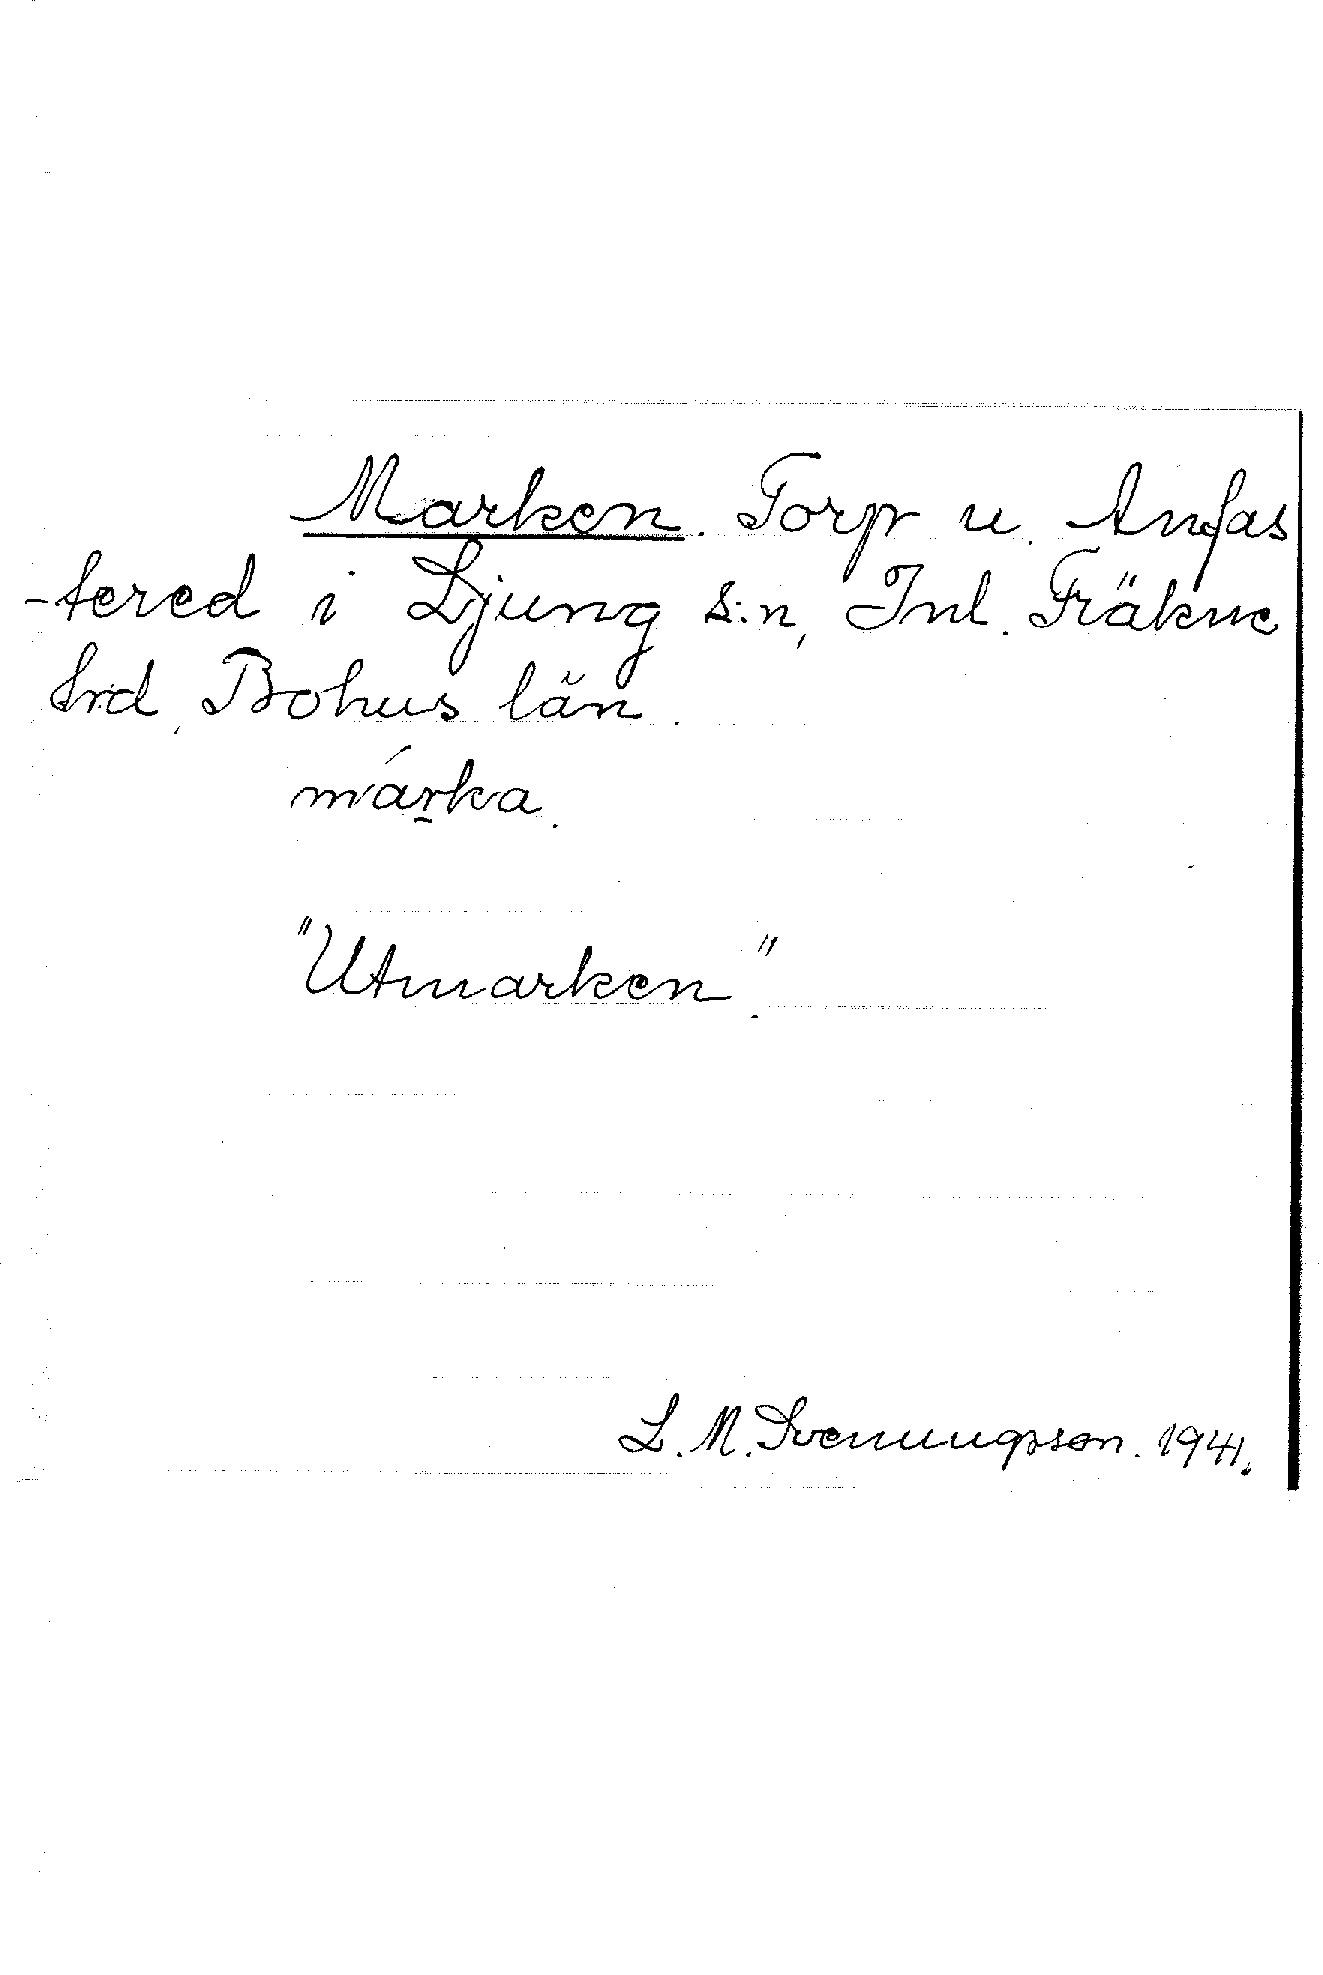 Marken. Torp u. Anfas
-tered i Ljung s:n, Inl. Fräkne
hrd, Bohus län.
márka.
"Utmarken."
L. M. Svenungsson. 1941.